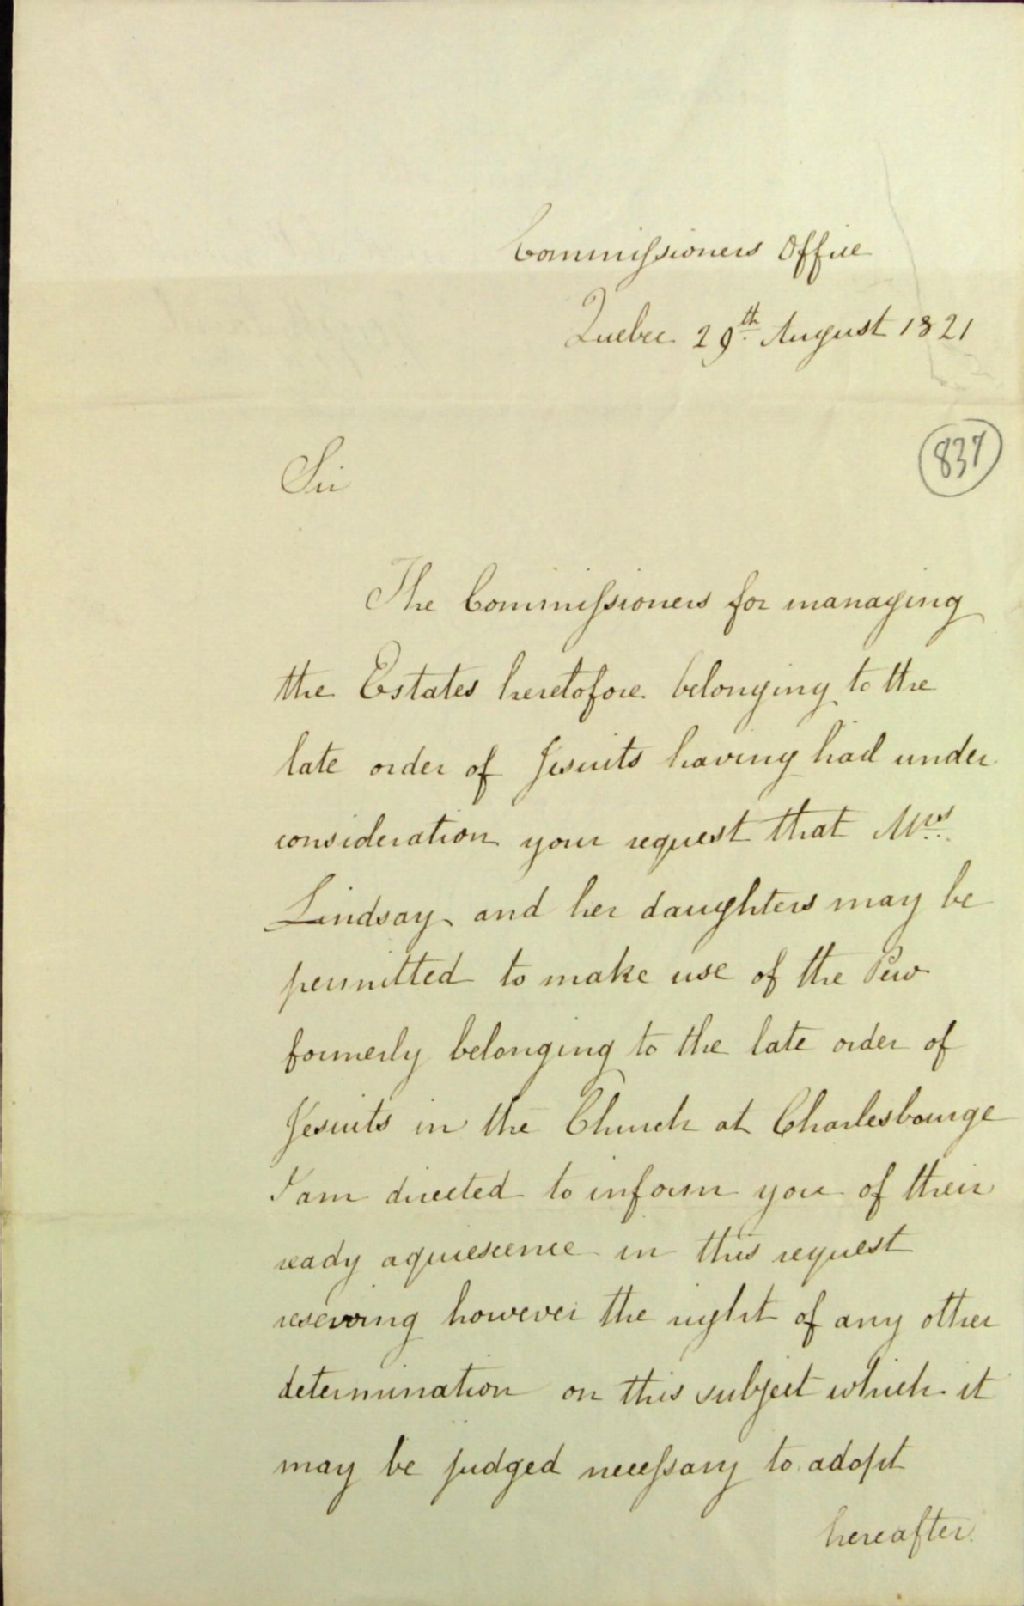 Commissioners Office
Quebec 29th August 1821
837
Sir
The Commissioners for managing
the Estates heretofore belonging to the
late order of Jesuits having had under
consideration your request that Mrs
Lindsay and her daughters may be
permitted to make use of the Pew
formerly belonging to the late order of
Jesuits in the Church at Charlesbourge
I am directed to inform you of their
ready aquiescence in this request
reserving however the right of any other
determination on this subject which it
may be judged necessary to adopt
hereafter